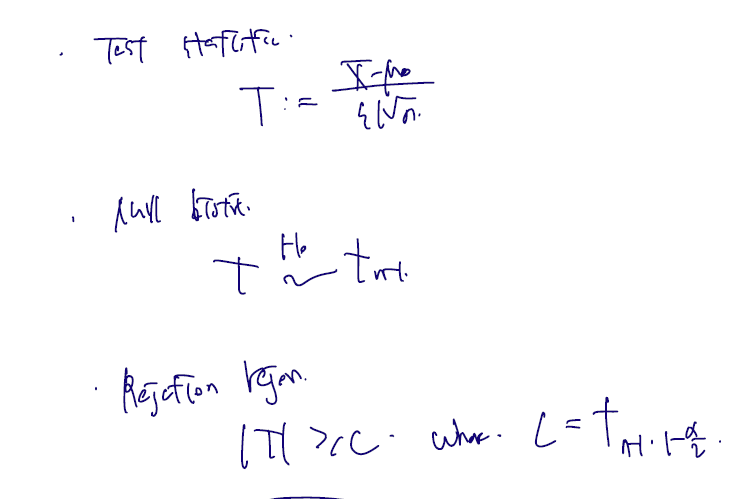 · Test statistic.
T := (X̄-μ₀)/(s/√n).
· Null distr.
T ~ᴴ⁰ tₙ₋₁.
· Rejection region.
|T| > c. where. c = tₙ₋₁, ₁₋α/₂.